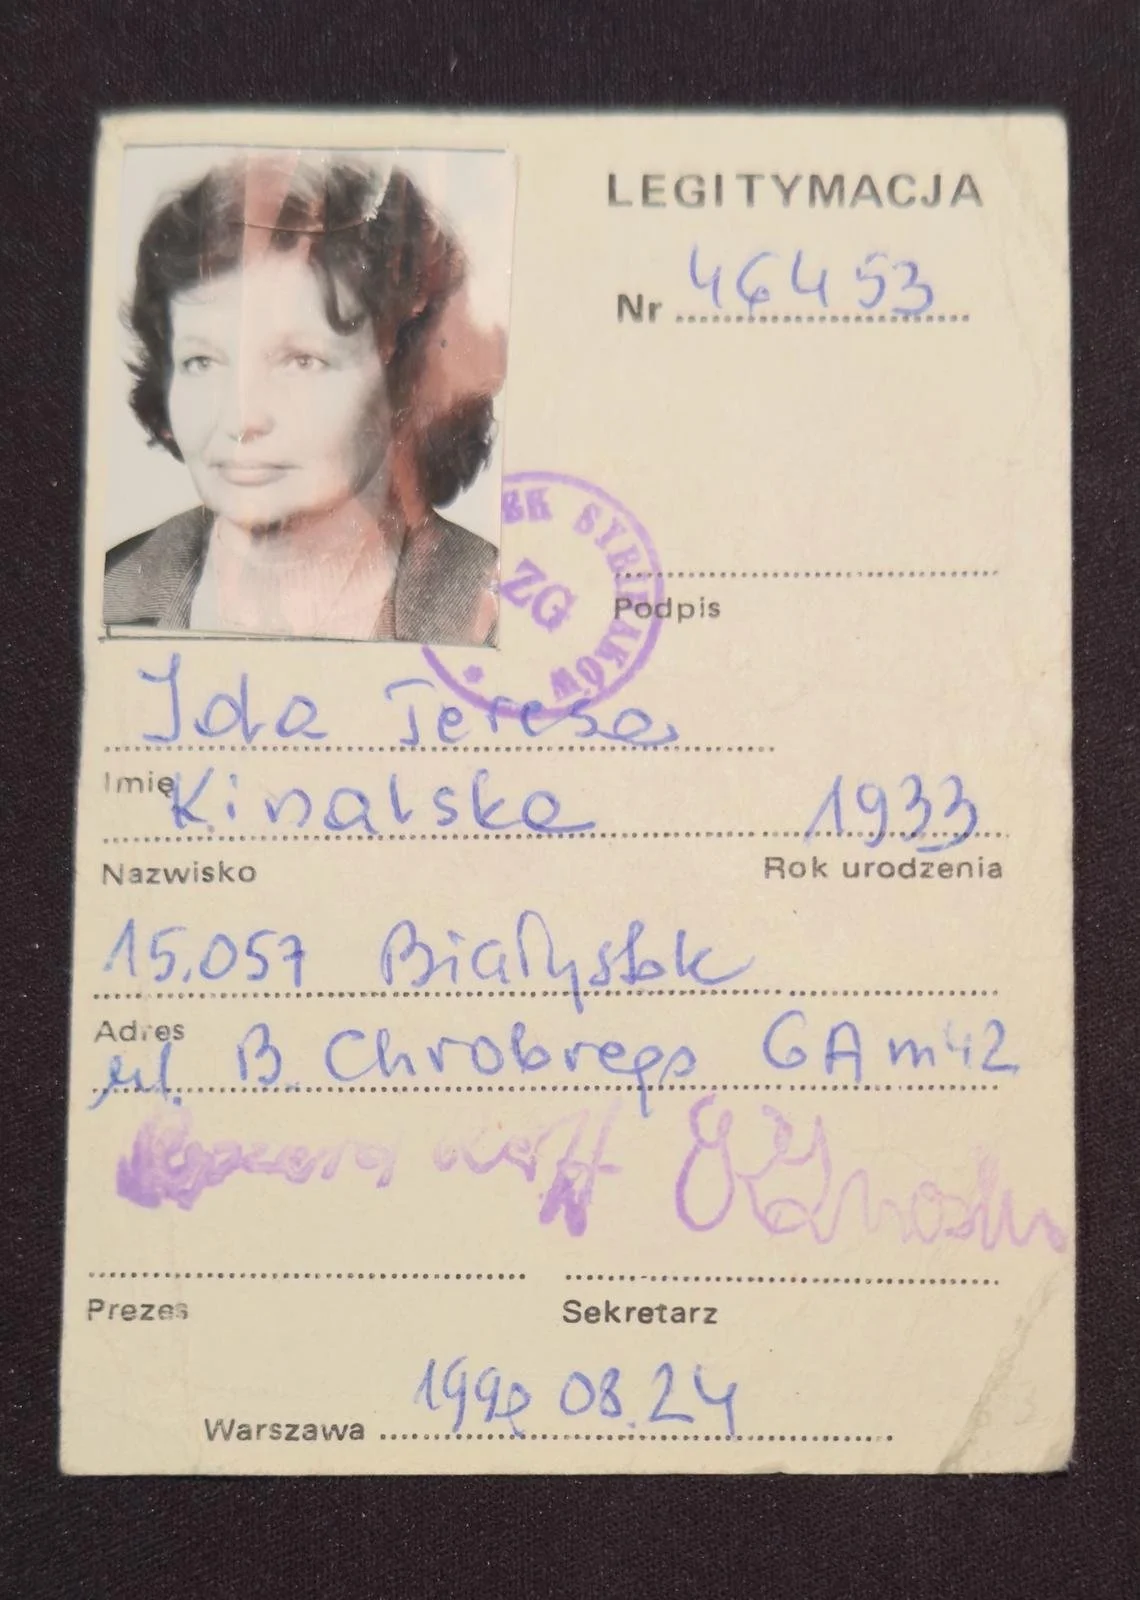 LEGITYMACJA
Nr 46453
ZEK SYBIRAKÓW
ZG
Podpis
Ida Teresa
Imię
Kinalska 1933
Nazwisko Rok urodzenia
15.057 Białystok
Adres
ul. B. Chrobrego 6A m 42
Prezes Sekretarz
Warszawa 1990 08.24